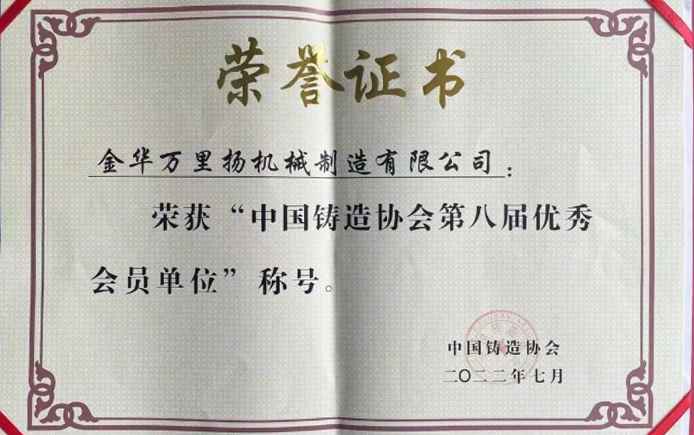 荣誉证书
金华万里扬机械制造有限公司：
荣获“中国铸造协会第八届优秀
会员单位”称号。
中国铸造协会
二〇二二年七月